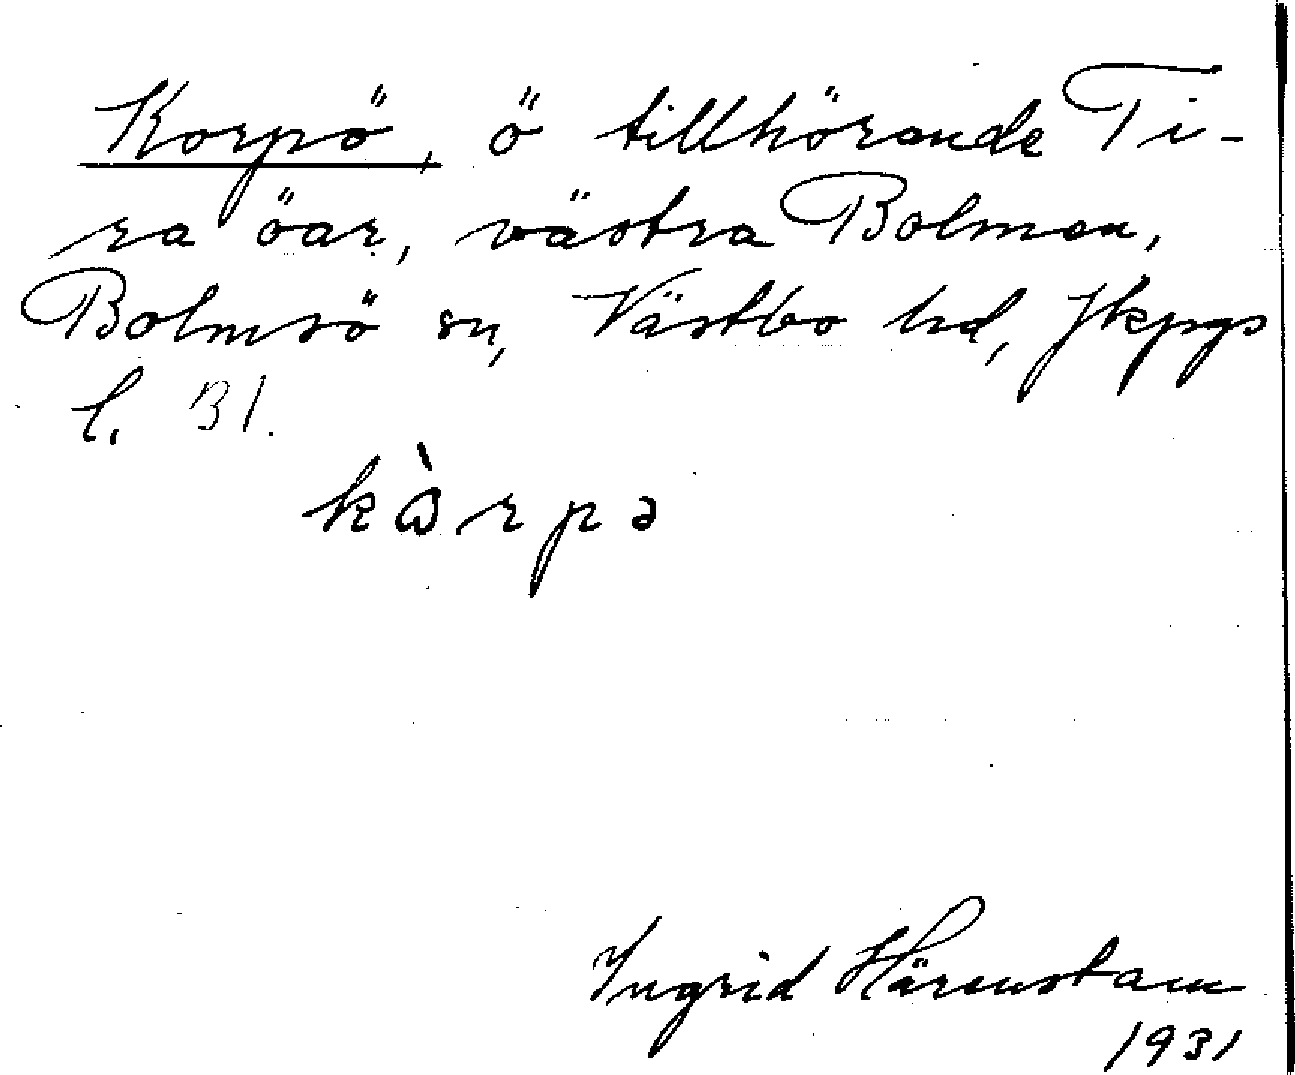 Korpö, ö tillhörande Ti-
ra öar, västra Bolmen,
Bolmsö sn, Västbo hd, Jkpgs
l. 31.
kàrpə
Ingrid Härenstam
1931